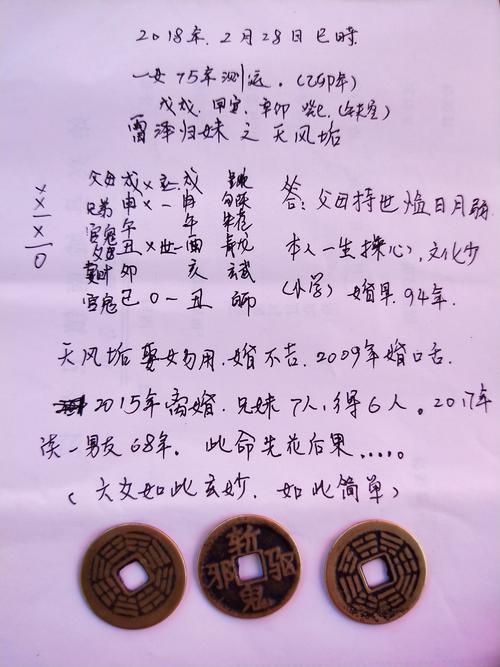 2018年.2月28日巳时
一女75年测运.(乙卯年)
戊戌.甲寅.辛卯 癸巳.(午未空)
雷泽归妹 之 天风垢
x 父母 戌 x 应. 戌
x 兄弟 申 x 一 申 勾陈
官鬼 午 午 朱雀
x 父母 丑 x 世一酉 青龙
卯 亥 玄武
0 官鬼 巳 0 一 丑
答:父母持世 日月弱
本人一生操心,文化少
(小学) 婚早.94年.
天风垢 娶女勿用.婚不吉.2009年婚口舌.
2015年离婚.兄妹7人,得6人。2017年
谈一男友68年. 此命先花后果.....。
(六爻如此玄妙.如此简单)
斩
邪 驱
鬼